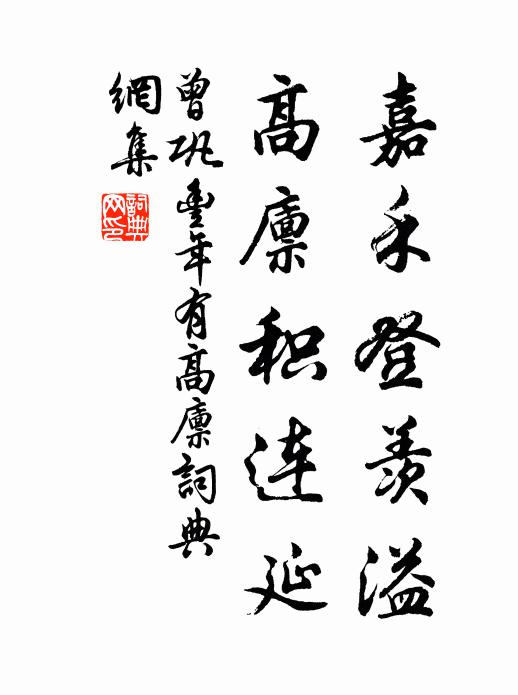 嘉禾登羡溢
高廪积连延
曾巩丰年有高廪詞典
網集
詞典网印